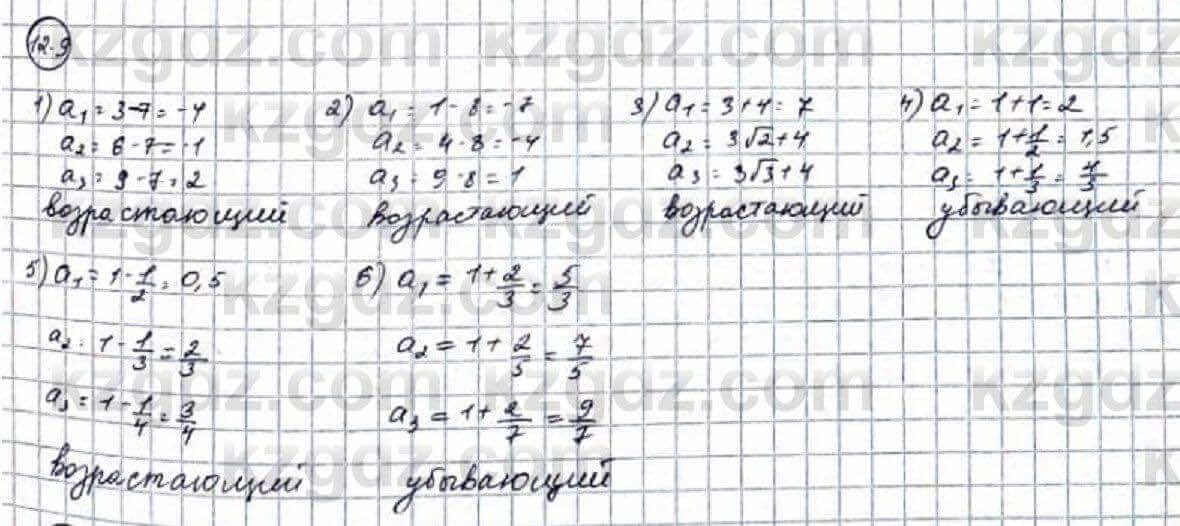 12.9
1) a₁ = 3-7 = -4
a₂ = 6-7 = -1
a₃ = 9-7 = 2
возрастающий
2) a₁ = 1-8 = -7
a₂ = 4-8 = -4
a₃ = 9-8 = 1
возрастающий
3) a₁ = 3+4 = 7
a₂ = 3√2+4
a₃ = 3√3+4
возрастающий
4) a₁ = 1+1 = 2
a₂ = 1+1/2 = 1,5
a₃ = 1+1/3 = 4/3
убывающий
5) a₁ = 1-1/2 = 0,5
a₂ = 1-1/3 = 2/3
a₃ = 1-1/4 = 3/4
возрастающий
6) a₁ = 1+2/3 = 5/3
a₂ = 1+2/5 = 7/5
a₃ = 1+2/7 = 9/7
убывающий
kzgdz.com